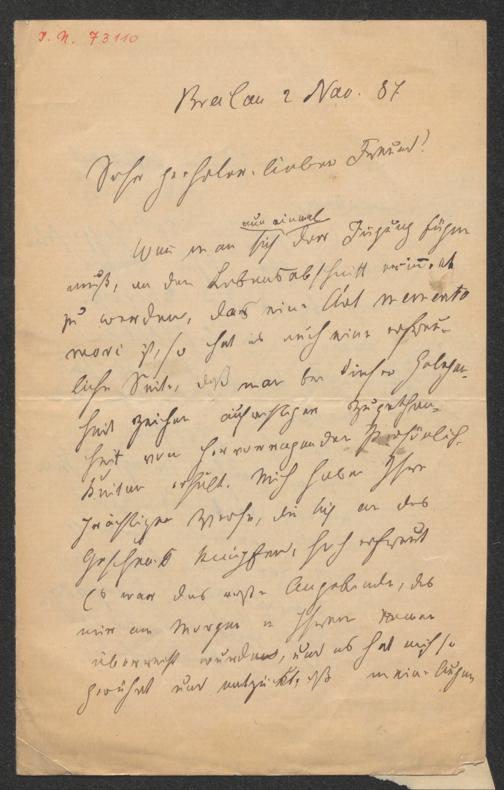 I. N. 73110
Breslau 2 Nov. 87
Sehr geehrter, lieber Freund!
nun einmal
Wenn man sich der Fügung fügen
muß, an den Lebensabschnitt erinnert
zu werden, das eine Art memento
mori ist, so hat es auch eine erfreu-
liche Seite, daß man bei dieser Gelegen-
heit Zeichen aufrichtiger Zugethan-
heit von hervorragenden Persönlich-
keiten erhält. Mich haben Ihre
prächtigen Verse, die sich an das
Geschenk knüpfen, hoch erfreut
Es war das erste Angebinde, das
mir am Morgen in Ihrem Namen
überreicht wurde, und es hat mich so
gerührt und entzückt, daß meine Augen